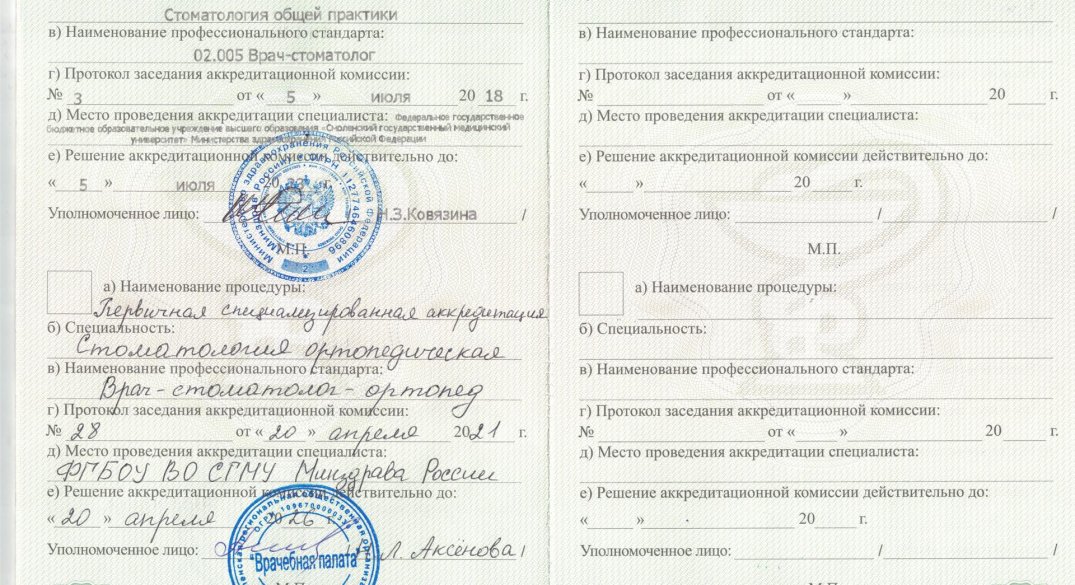 Стоматология общей практики
в) Наименование профессионального стандарта:
02.005 Врач-стоматолог
г) Протокол заседания аккредитационной комиссии:
№ 3 от « 5 » июля 20 18 г.
д) Место проведения аккредитации специалиста: Федеральное государственное
бюджетное образовательное учреждение высшего образования «Смоленский государственный медицинский
университет» Министерства здравоохранения Российской Федерации
е) Решение аккредитационной комиссии действительно до:
« 5 » июля 20 г.
Уполномоченное лицо: Н.З.Ковязина /
Министерство здравоохранения Российской Федерации
(Минздрав России) * ОГРН 1127746460896
2
М.П.
а) Наименование процедуры:
Первичная специализированная аккредитация
б) Специальность:
Стоматология ортопедическая
в) Наименование профессионального стандарта:
Врач-стоматолог-ортопед
г) Протокол заседания аккредитационной комиссии:
№ 28 от « 20 » апреля 2021 г.
д) Место проведения аккредитации специалиста:
ФГБОУ ВО СГМУ Минздрава России
е) Решение аккредитационной комиссии действительно до:
« 20 » апреля 2026 г.
Уполномоченное лицо: Л. Аксёнова /
региональная общественная
ОГРН
"Врачебная палата"
М.П.
в) Наименование профессионального стандарта:
г) Протокол заседания аккредитационной комиссии:
№ от « » 20 г.
д) Место проведения аккредитации специалиста:
е) Решение аккредитационной комиссии действительно до:
« » 20 г.
Уполномоченное лицо: / /
М.П.
а) Наименование процедуры:
б) Специальность:
в) Наименование профессионального стандарта:
г) Протокол заседания аккредитационной комиссии:
№ от « » 20 г.
д) Место проведения аккредитации специалиста:
е) Решение аккредитационной комиссии действительно до:
« » 20 г.
Уполномоченное лицо: / /
М.П.